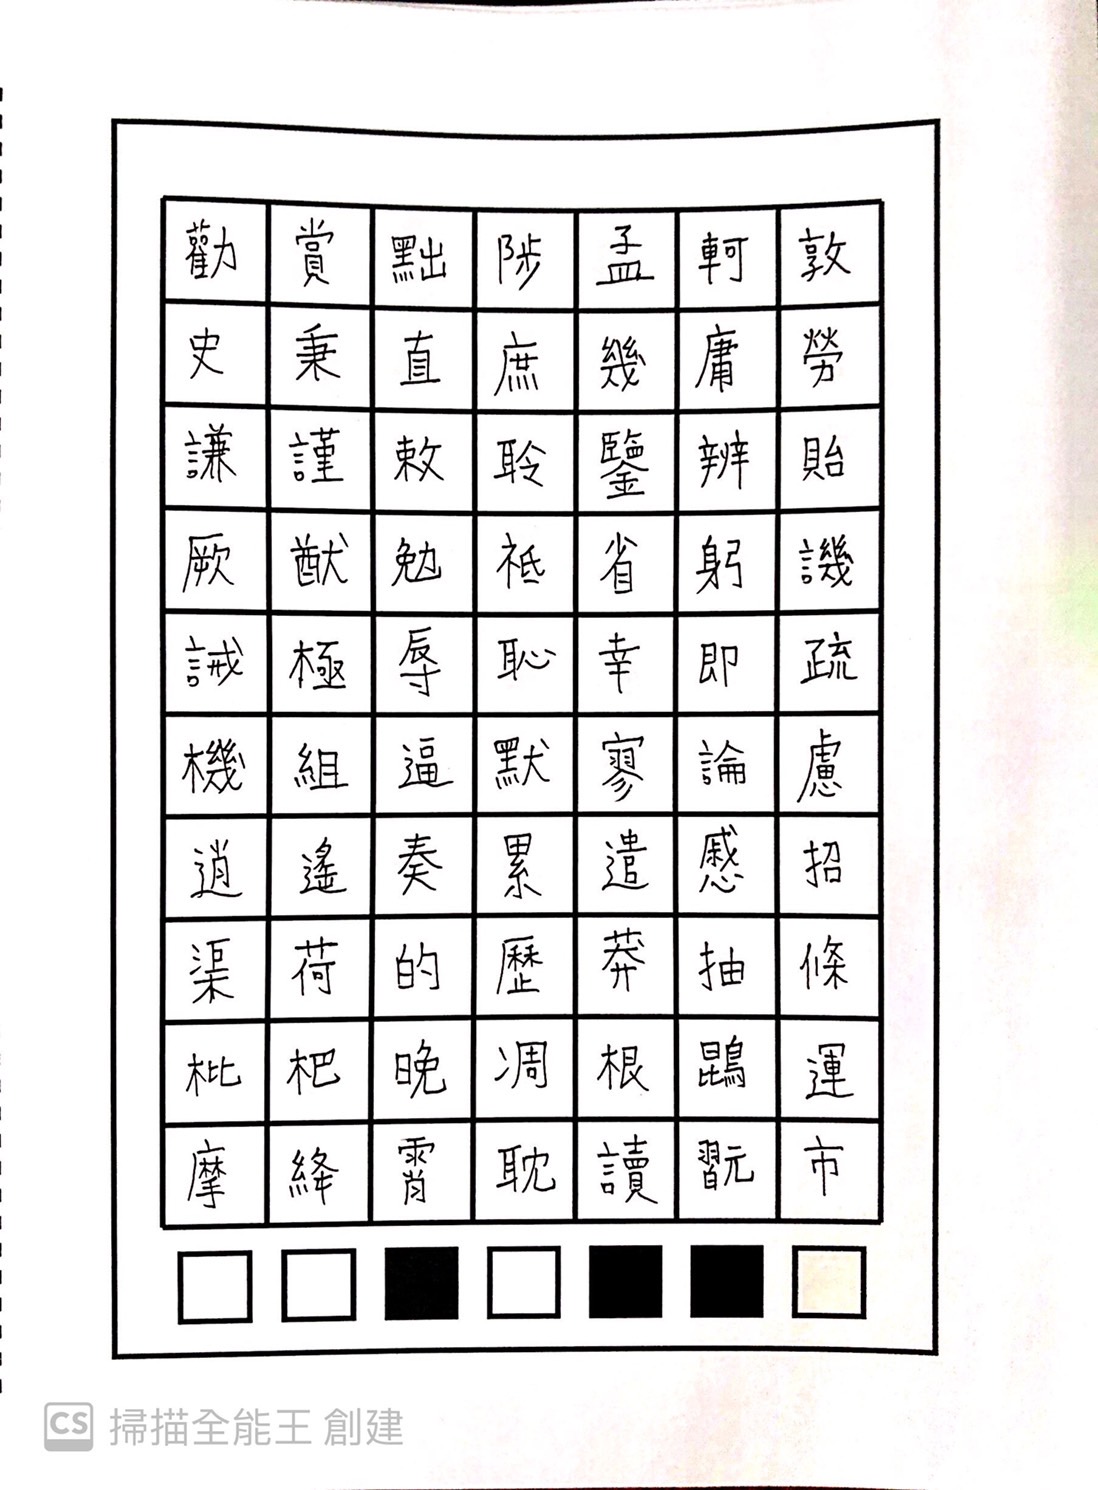 勸賞黜陟孟軻敦
史秉直庶幾庸勞
謙謹敕聆鑒辨貽
厥猷勉祗省躬譏
誡極辱恥幸即疏
機組逼默寥論慮
逍遙奏累遣慼招
渠荷的歷莽抽條
枇杷晚凋根鵾運
摩絳霄耽讀翫市
CS 掃描全能王 創建